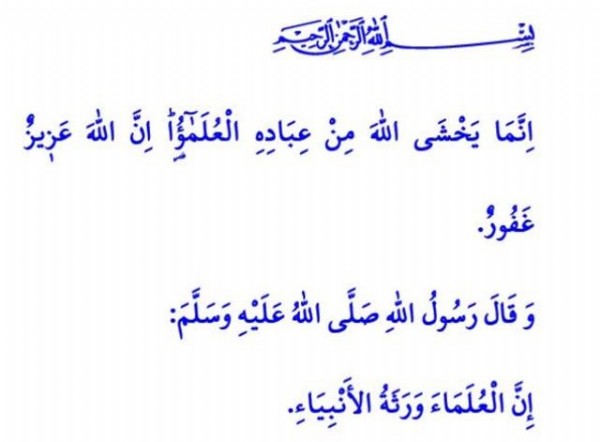 بِسْمِ اللهِ الرَّحْمٰنِ الرَّحِيمِ
اِنَّمَا يَخْشَى اللهَ مِنْ عِبَادِهِ الْعُلَمٰٓؤُ۬اۜ اِنَّ اللهَ عَز۪يزٌ
غَفُورٌ.
وَ قَالَ رَسُولُ اللهِ صَلَّى اللهُ عَلَيْهِ وَسَلَّمَ:
إِنَّ الْعُلَمَاءَ وَرَثَةُ الأَنْبِيَاءِ.